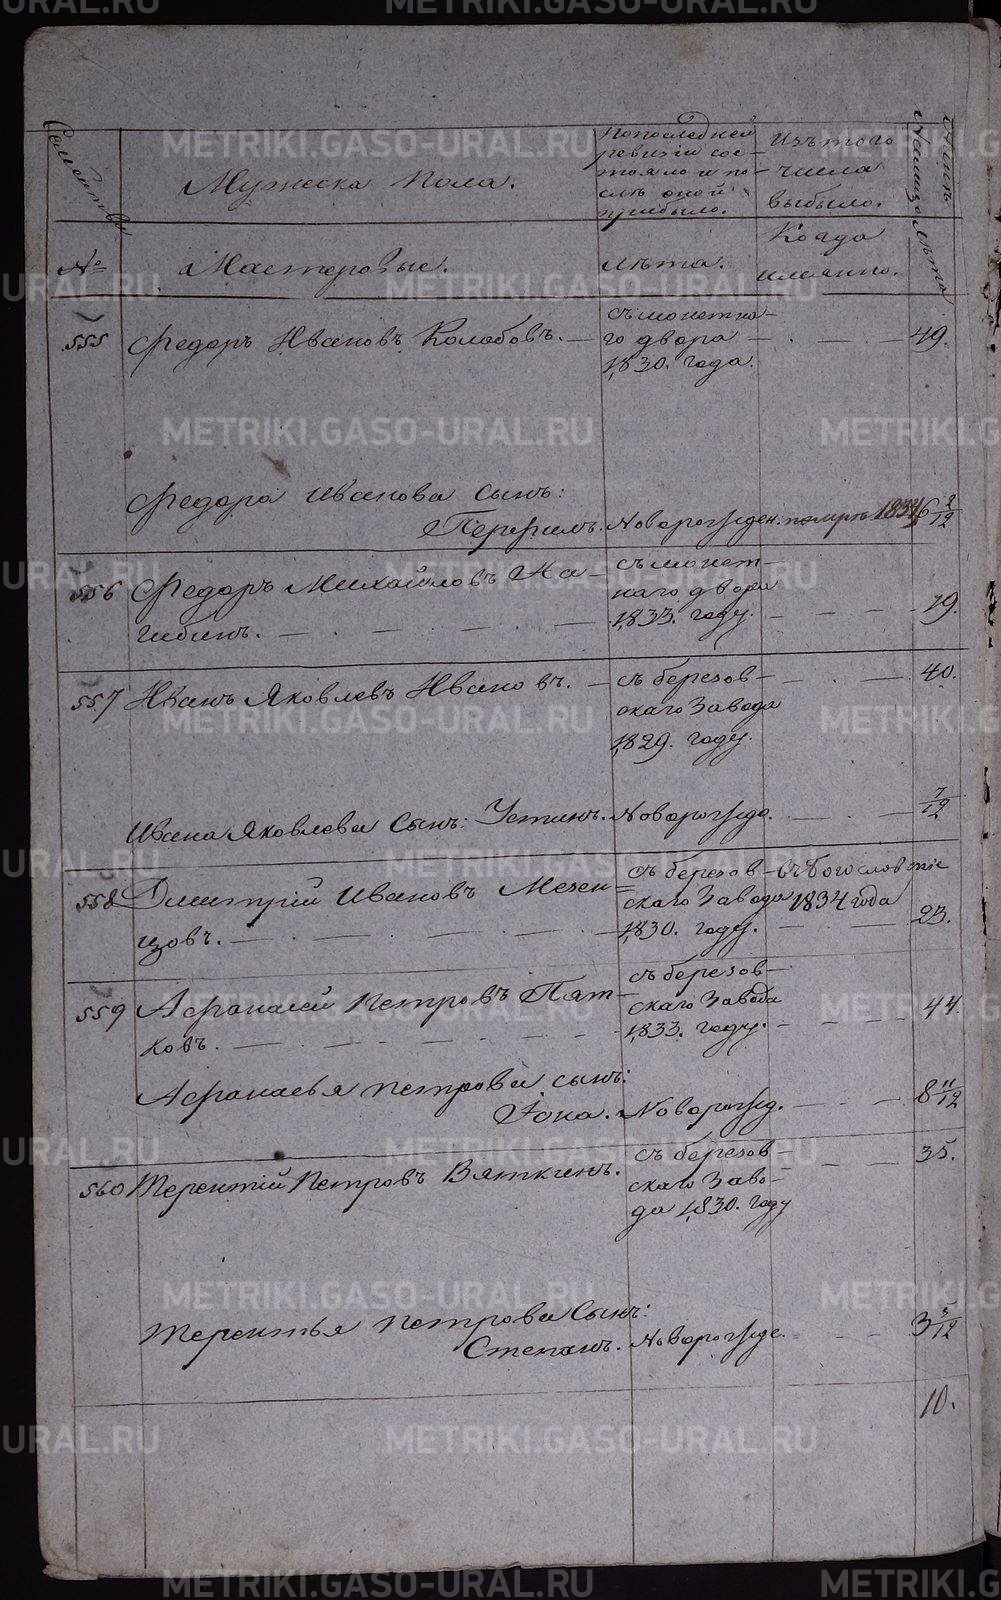 Семейства
Мужеска пола.
Попоследней
ревизіи сос-
тояло и по-
слѣ оной
прибыло.
Изътого
числа
выбыло.
Нынѣ
налицо
№
Мастеровые.
лѣта.
Когда
имянно.
лѣта
555
Федоръ Ивановъ Колобовъ. —
съ монетна-
го двора
1830. года.
49.
Федора Иванова сынъ:
Перфилъ. Новорожден: помре 1834
6 2/12
556
Федоръ Михайловъ На-
гибинъ. —
съ монет-
наго двора
1833. году.
19.
557
Иванъ Яковлевъ Ивановъ. —
съ березов-
скаго Завода
1829. году.
40.
Ивана Яковлева Сынъ: Устинъ. Новорожде.
7/12
558
Дмитрій Ивановъ Мезен=
цовъ. —
съ березов-
скаго Завода
1830. году.
въ Богословскіе
1834 года
23.
559
Афонасей Петровъ Пят-
ковъ. —
съ березов-
скаго Завода
1833. году.
44.
Афонасья Петрова сынъ:
Іона. Новорожд.
8 11/12
560
Терентій Петровъ Вяткинъ.
съ березов-
скаго Заво-
да 1830. году
35.
Терентья Петрова Сынъ:
Степанъ. Новорожде.
3 3/12
10.
METRIKI.GASO-URAL.RU